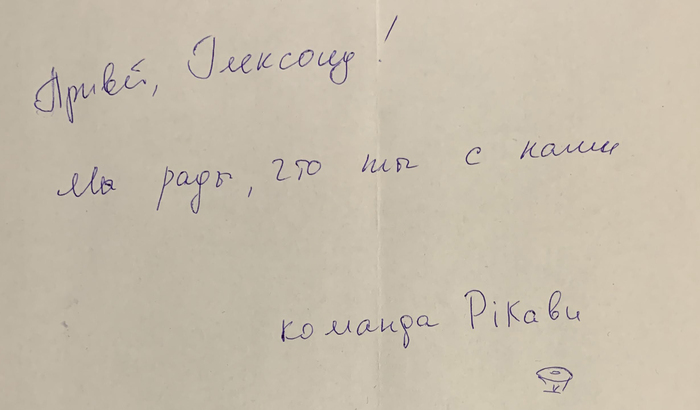 Привет, !
Мы рады, что ты с нами
команда Рікави